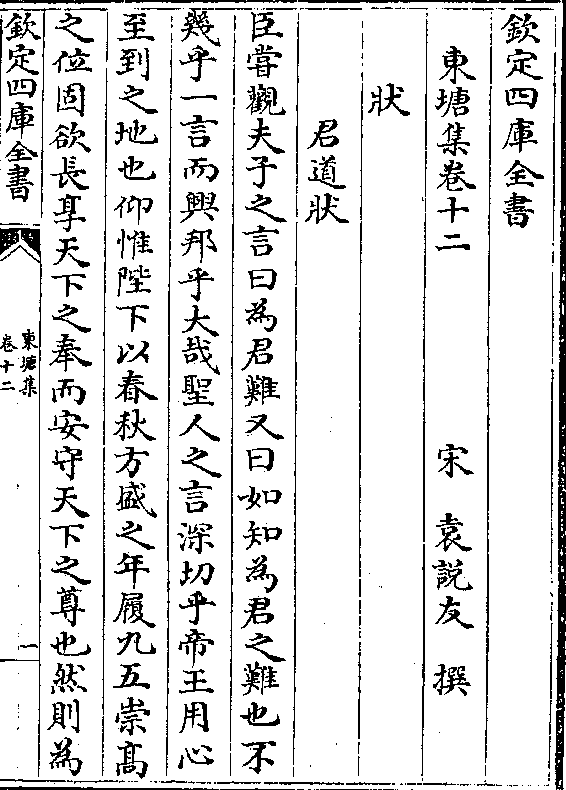 欽定四庫全書
東塘集卷十二
宋 袁說友 撰
狀
君道狀
臣嘗觀夫子之言曰為君難又曰如知為君之難也不
幾乎一言而興邦乎大哉聖人之言深切乎帝王用心
至到之地也仰惟陛下以春秋方盛之年履九五崇髙
之位固欲長享天下之奉而安守天下之尊也然則為
欽定四庫全書
東塘集
卷十二
一